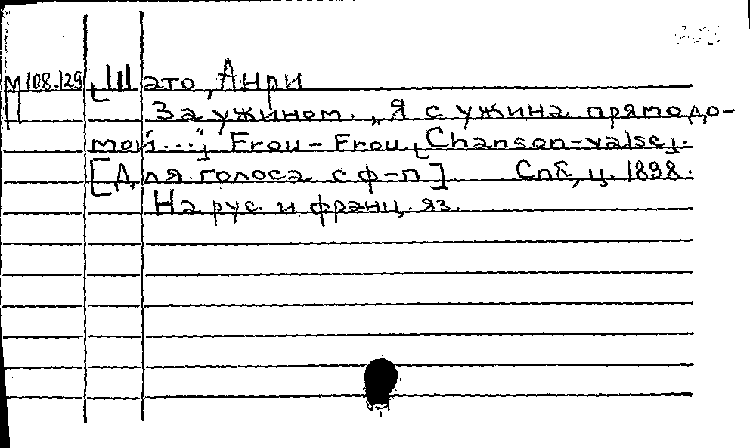 М 108.129 [Шато, Анри
За ужином. „Я с ужина прямо до-
мой..." Frou-Frou [Chanson-valse].
[Для голоса с ф-п] Спб, ц. 1898.
На рус. и франц. яз.